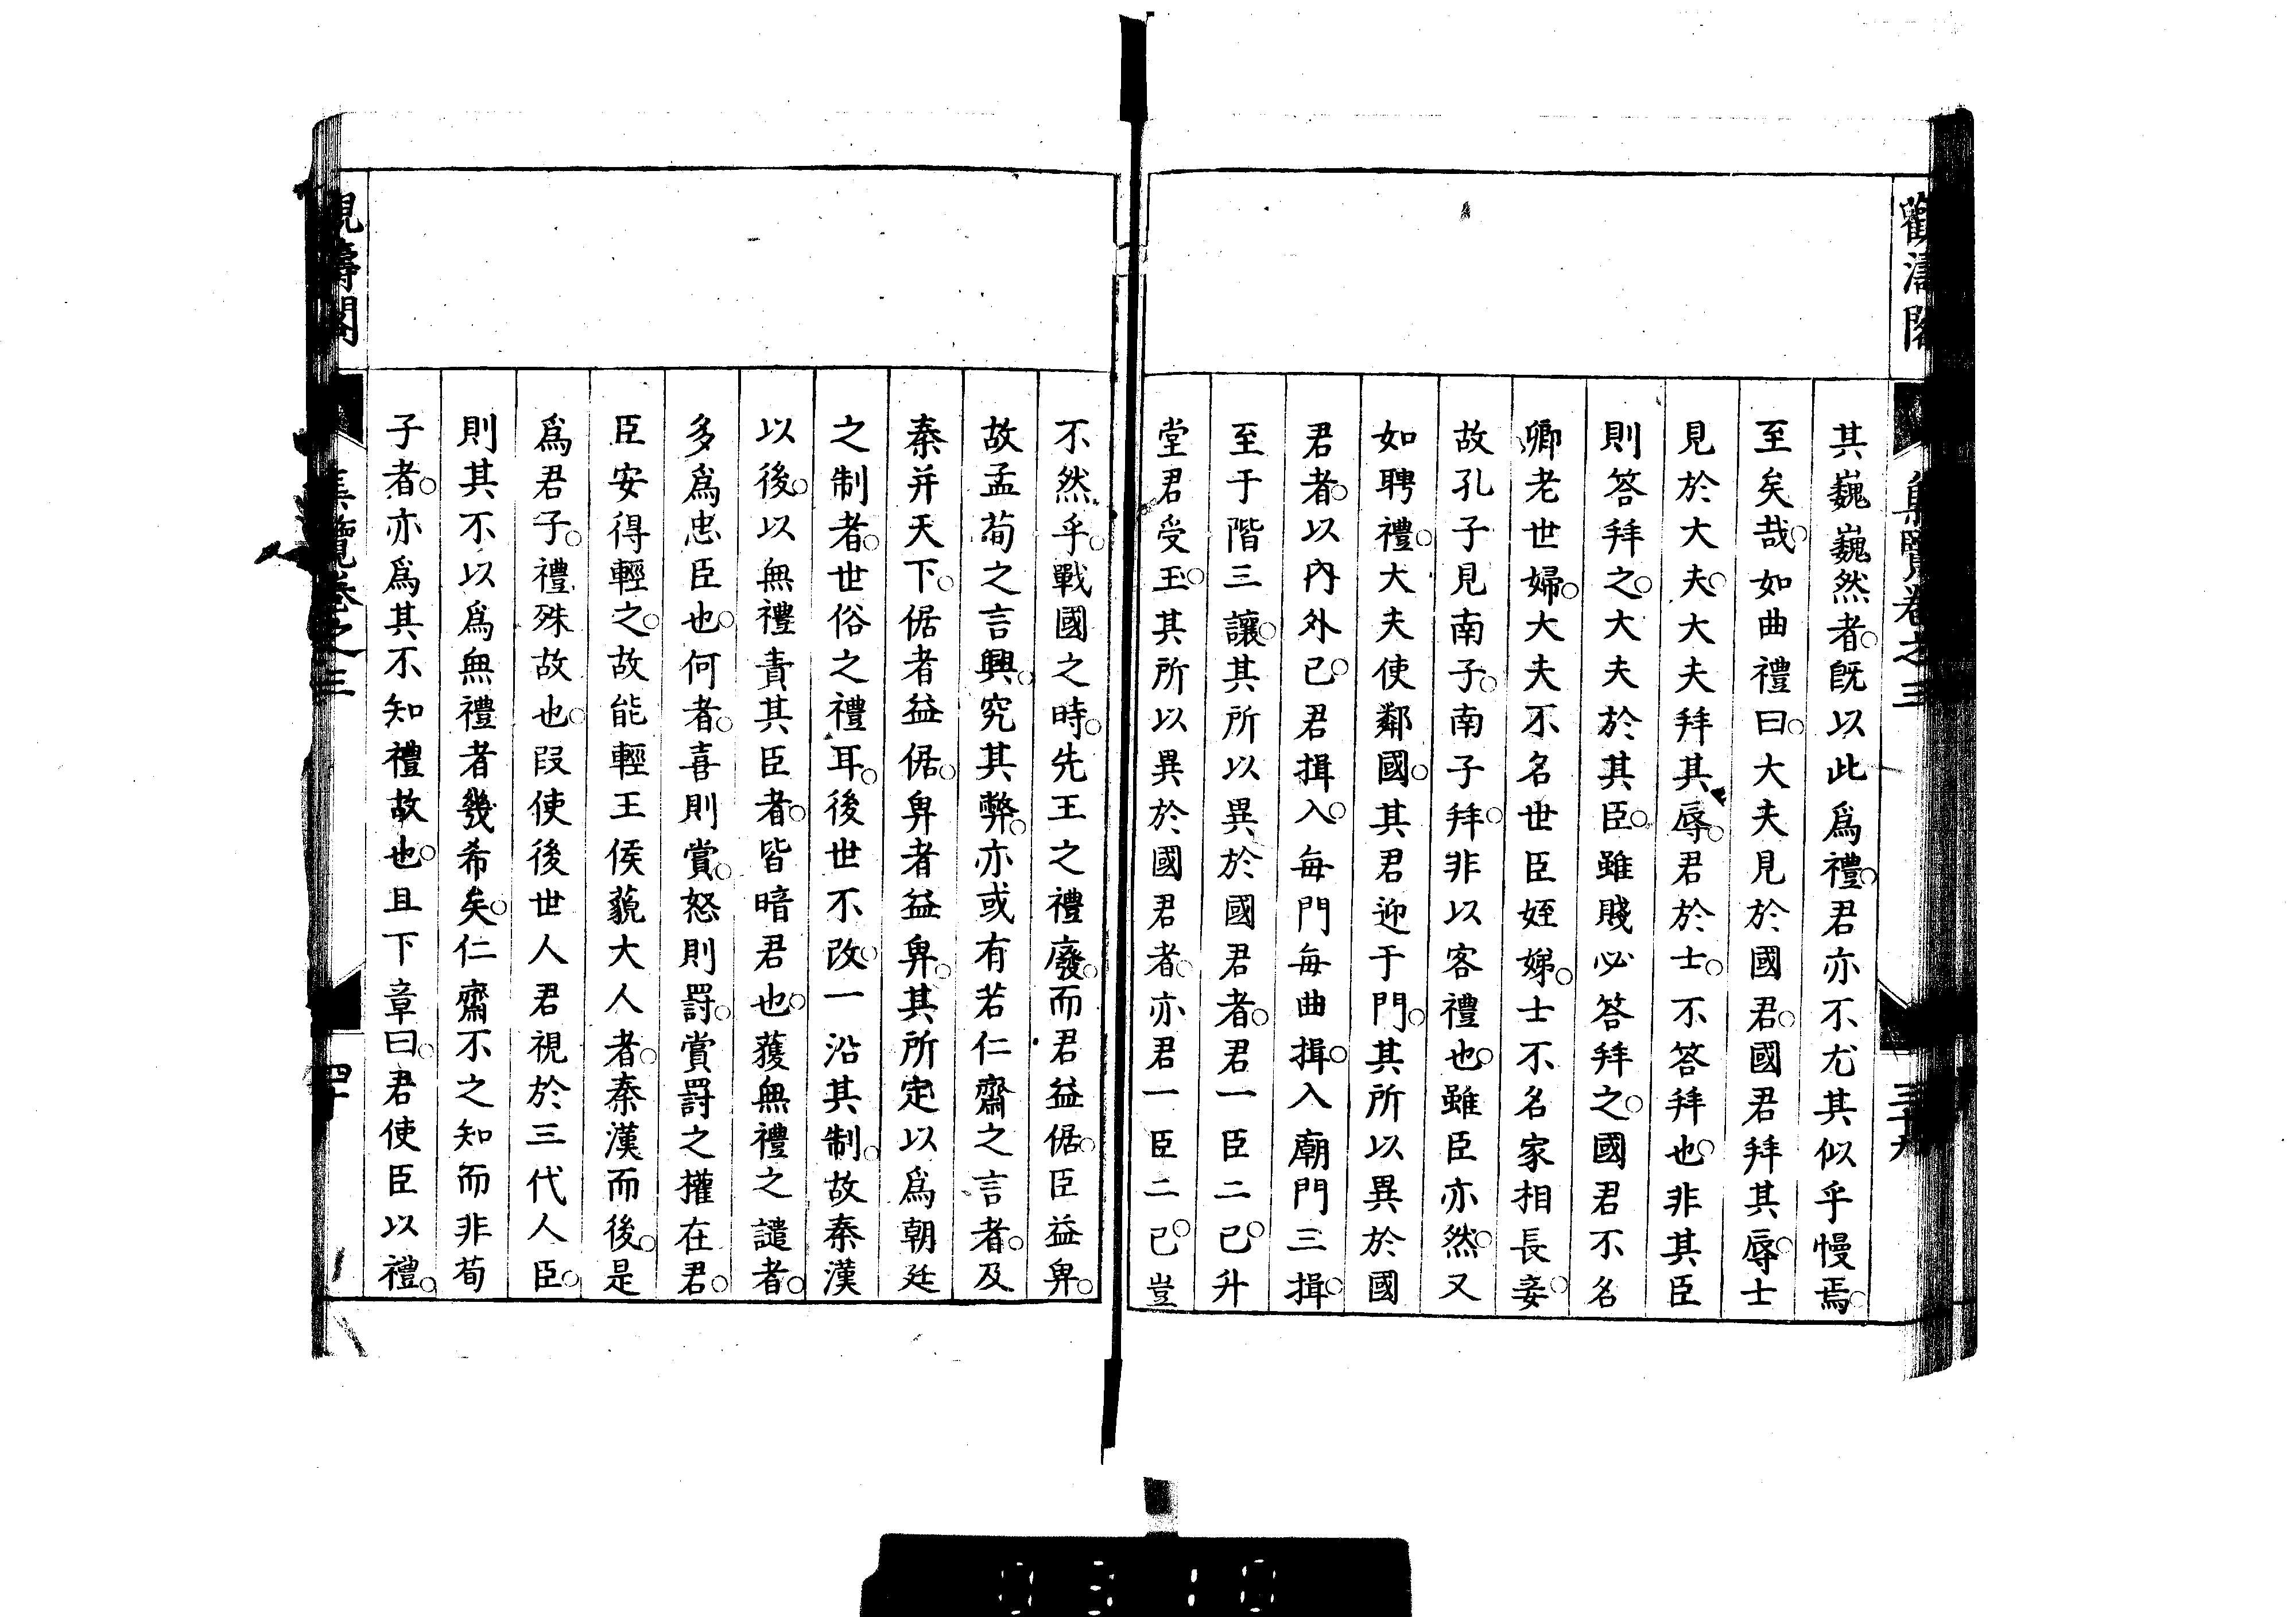 觀濤閣
集覽卷之三
三十九
其巍巍然者。旣以此爲禮。君亦不尤其似乎慢焉。
至矣哉。如曲禮曰。大夫見於國君。國君拜其辱。士
見於大夫。大夫拜其辱。君於士。不答拜也。非其臣
則答拜之。大夫於其臣。雖賤必答拜之。國君不名
卿老世婦。大夫不名世臣姪娣。士不名家相長妾。
故孔子見南子。南子拜。非以客禮也。雖臣亦然。又
如聘禮。大夫使鄰國。其君迎于門。其所以異於國
君者。以內外已。君揖入。每門每曲揖。入廟門三揖。
至于階三讓。其所以異於國君者。君一臣二已。升
堂君受玉。其所以異於國君者。亦君一臣二已。豈
不然乎。戰國之時。先王之禮廢。而君益倨。臣益卑。
故孟荀之言興。究其弊。亦或有若仁齋之言者。及
秦并天下。倨者益倨。卑者益卑。其所定以爲朝廷
之制者。世俗之禮耳。後世不改。一沿其制。故秦漢
以後。以無禮責其臣者。皆暗君也。獲無禮之譴者。
多爲忠臣也。何者。喜則賞。怒則罸。賞罸之權在君。
臣安得輕之。故能輕王侯藐大人者。秦漢而後。是
爲君子。禮殊故也。叚使後世人君視於三代人臣。
則其不以爲無禮者幾希矣。仁齋不之知而非荀
子者。亦爲其不知禮故也。且下章曰。君使臣以禮。
觀濤閣
集覽卷之三
四十
0310